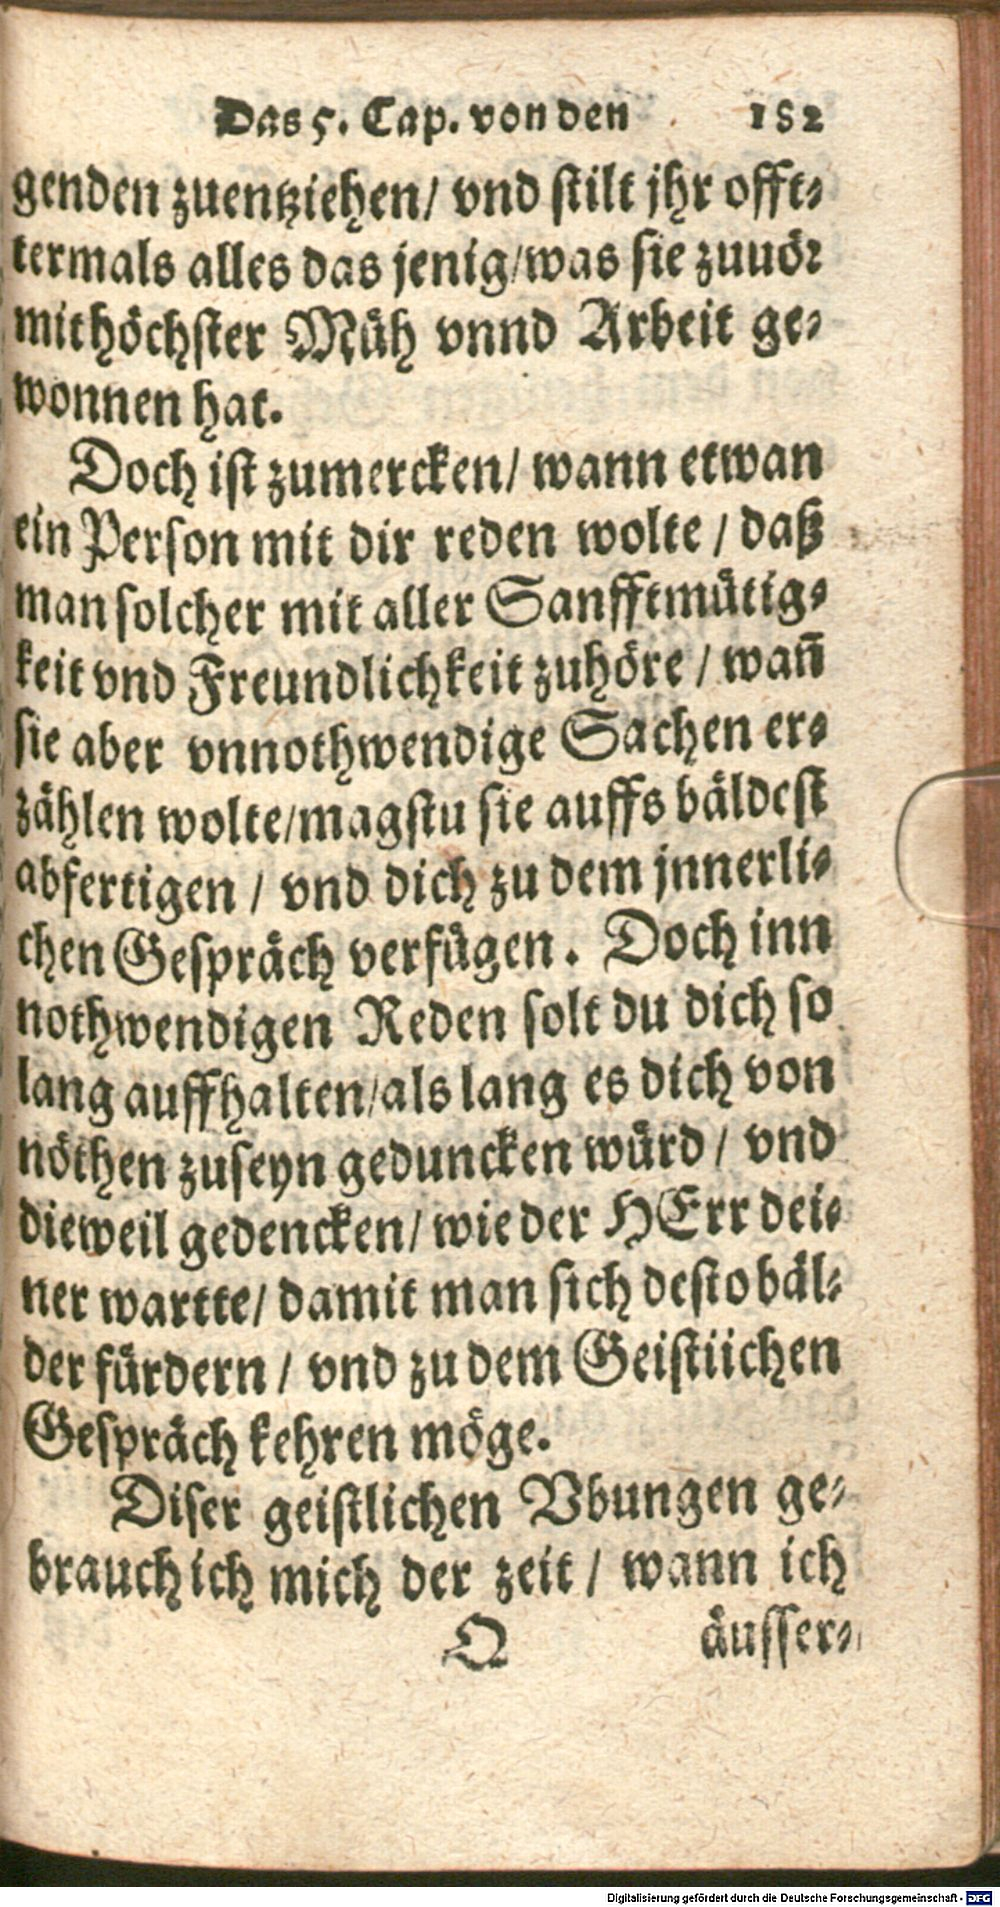 Das 5. Cap. von den 182
genden zuentziehen/ vnd stilt jhr offt-
termals alles das jenig/was sie zuuor
mit höchster Müh vnnd Arbeit ge-
wonnen hat.
Doch ist zumercken/ wann etwan
ein Person mit dir reden wolte / daß
man solcher mit aller Sanfftmütig-
keit vnd Freundlichkeit zuhöre / wañ
sie aber vnnothwendige Sachen er-
zählen wolte/magstu sie auffs bäldest
abfertigen / vnd dich zu dem jnnerli-
chen Gespräch verfügen. Doch inn
nothwendigen Reden solt du dich so
lang auffhalten/als lang es dich von
nöthen zuseyn geduncken würd / vnd
dieweil gedencken/ wie der HErr dei-
ner wartte/ damit man sich desto bäl-
der fürdern / vnd zu dem Geistiichen
Gespräch kehren möge.
Diser geistlichen Vbungen ge-
brauch ich mich der zeit / wann ich
Q äusser-
Digitalisierung gefördert durch die Deutsche Forschungsgemeinschaft - DFG